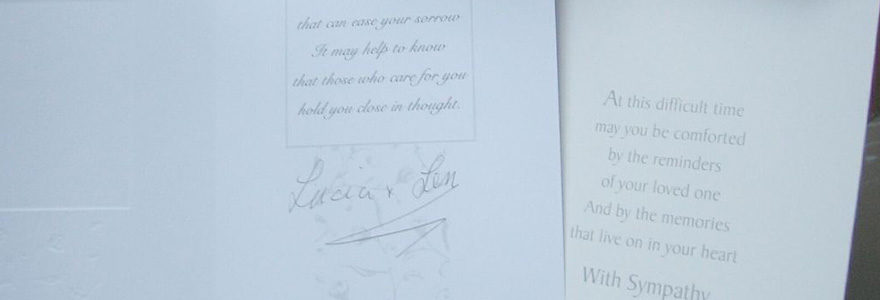 that can ease your sorrow
It may help to know
that those who care for you
hold you close in thought.
Lucia & Len
At this difficult time
may you be comforted
by the reminders
of your loved one
And by the memories
that live on in your heart
With Sympathy